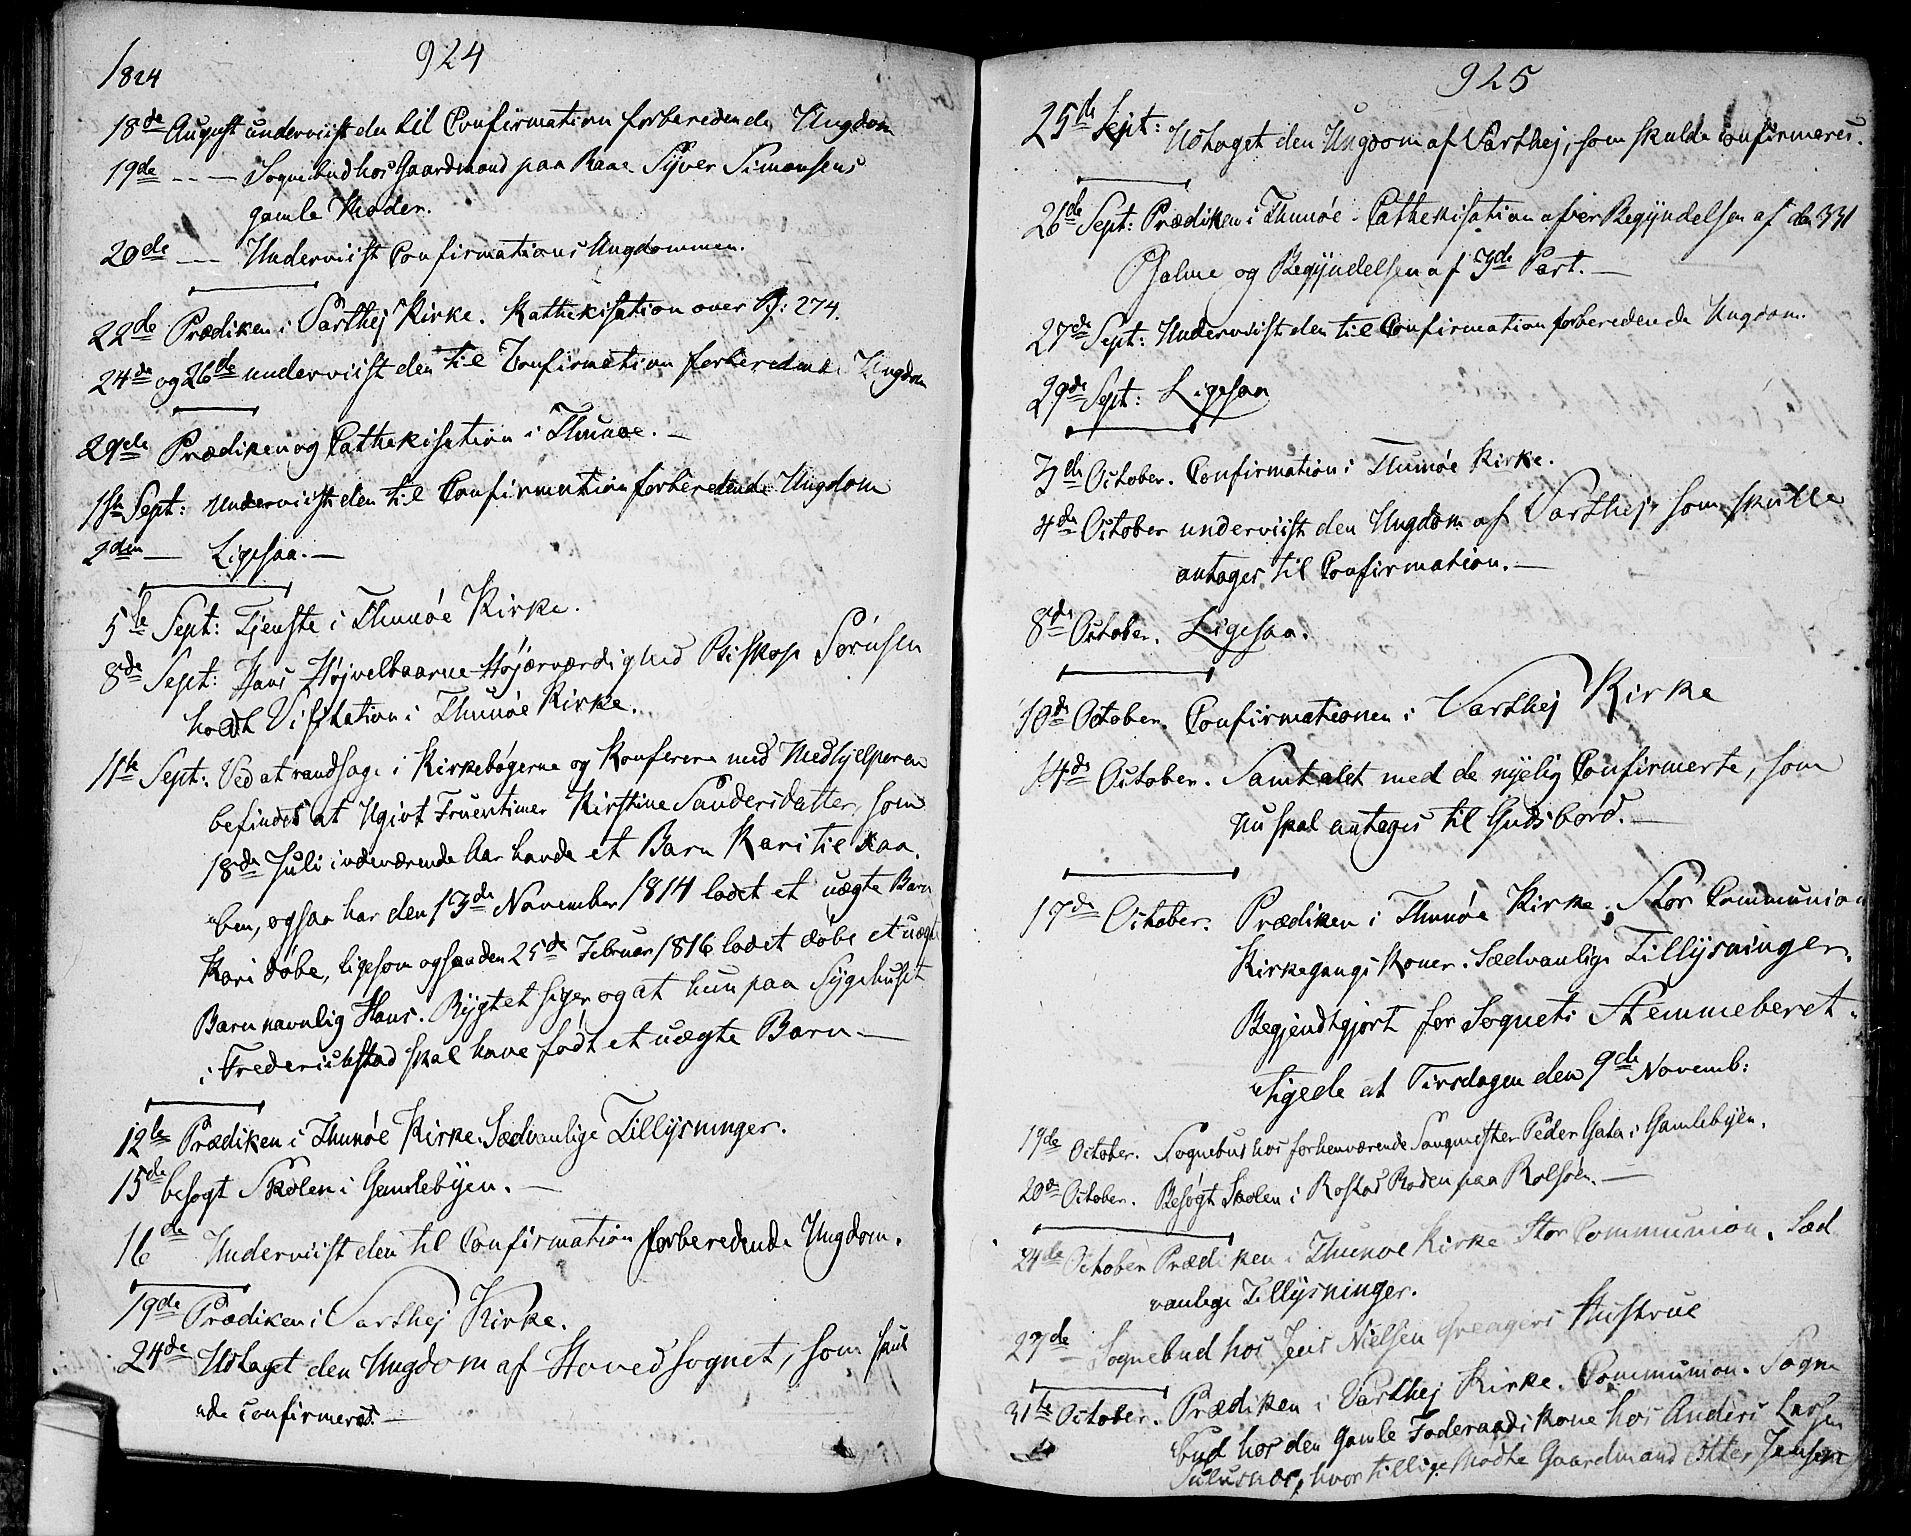 1824
924
18de August underviist den til Confirmation forberedende Ungdom
19de -- — Sognebud hos Gaardmand paa Raae Syver Simonsens
gamle Moder.
20de -- — Underviist Confirmations Ungdommen.
22de Prædiken i Varthej Kirke. Kathekisation over Ps: 274.
24de og 26de underviist den til Confirmation forberedende Ungdom
29de Prædiken og Cathekisation i Thunøe. —
1ste Sept: Underviist den til Confirmation forberedende Ungdom
2den — Ligesaa. —
5te Sept: Tjenste i Thunøe Kirke.
8de Sept: Hans Højvelbaarne Højærværdighed Biskop Sørnsen
holdt Visitation i Thunøe Kirke.
11te Sept: Ved at randsage i Kirkebøgerne og Konferere med Medhjelperen
befindes at Ugivt Fruentimer Kirstine Sandersdatter, som
18de Juli indeværende Aar havde et Barn Kari til Daa-
ben, ogsaa har den 13de November 1814 ladet et uægte Barn
Kari døbe, ligesom ogsaa den 25de Februar 1816 ladet døbe et uægte
Barn navnlig Hans. Rygtet siger og at hun paa Sygehuset
i Frederichstad skal have født et uægte Barn —
12te Prædiken i Thunøe Kirke. Sædvanlige Tillysninger.
15de besøgt Skolen i Gamlebyen. —
16de Underviist den til Confirmation forberedende Ungdom.
19de Prædiken i Varthej Kirke.
24de Udtaget den Ungdom af Hovedsognet, som skul
de confirmeres. —
925
25de Sept: Udtaget den Ungdom af Varthej, som skulde confirmeres.
26de Sept: Prædiken i Thunøe. Cathekisation over Begyndelsen af den 331
Psalme og Begyndelsen af 3de Part. —
27de Sept: Underviist den til Confirmation forberedende Ungdom.
29de Sept: Ligesaa
3de October. Confirmation i Thunøe Kirke.
4de October underviist den Ungdom af Varthej som skulle
antages til Confirmation. —
8de October. Ligesaa.
10de October. Confirmationen i Varthej Kirke
14de October. Samtalet med de nyelig Confirmerte, som
nu skal antages til Gudsbord. —
17de October. Prædiken i Thunøe Kirke. Stor Communion
Kirkegangs Koner. Sædvanlige Tillysninger.
Begjendtgjort for Sognets Stemmeberet-
tigede at Tirsdagen den 9de Novemb:
19de October. Sognebud hos forhenværende Saugmester Peder Gata i Gamlebyen.
20de October. Besøgt Skolen i Rostad Roden paa Rolsøen. —
24de October Prædiken i Thunøe Kirke Stor Communion. Sæd
vanlige Tillysninger.
27de — Sognebud hos Jens Nielsen Hustrue
31te October. Prædiken i Varthej Kirke. Communion. Sogne
bud hos den gamle Føderaads kone hos Anders Larsen
hvor tillige mødte Gaardmand Otter Jensen